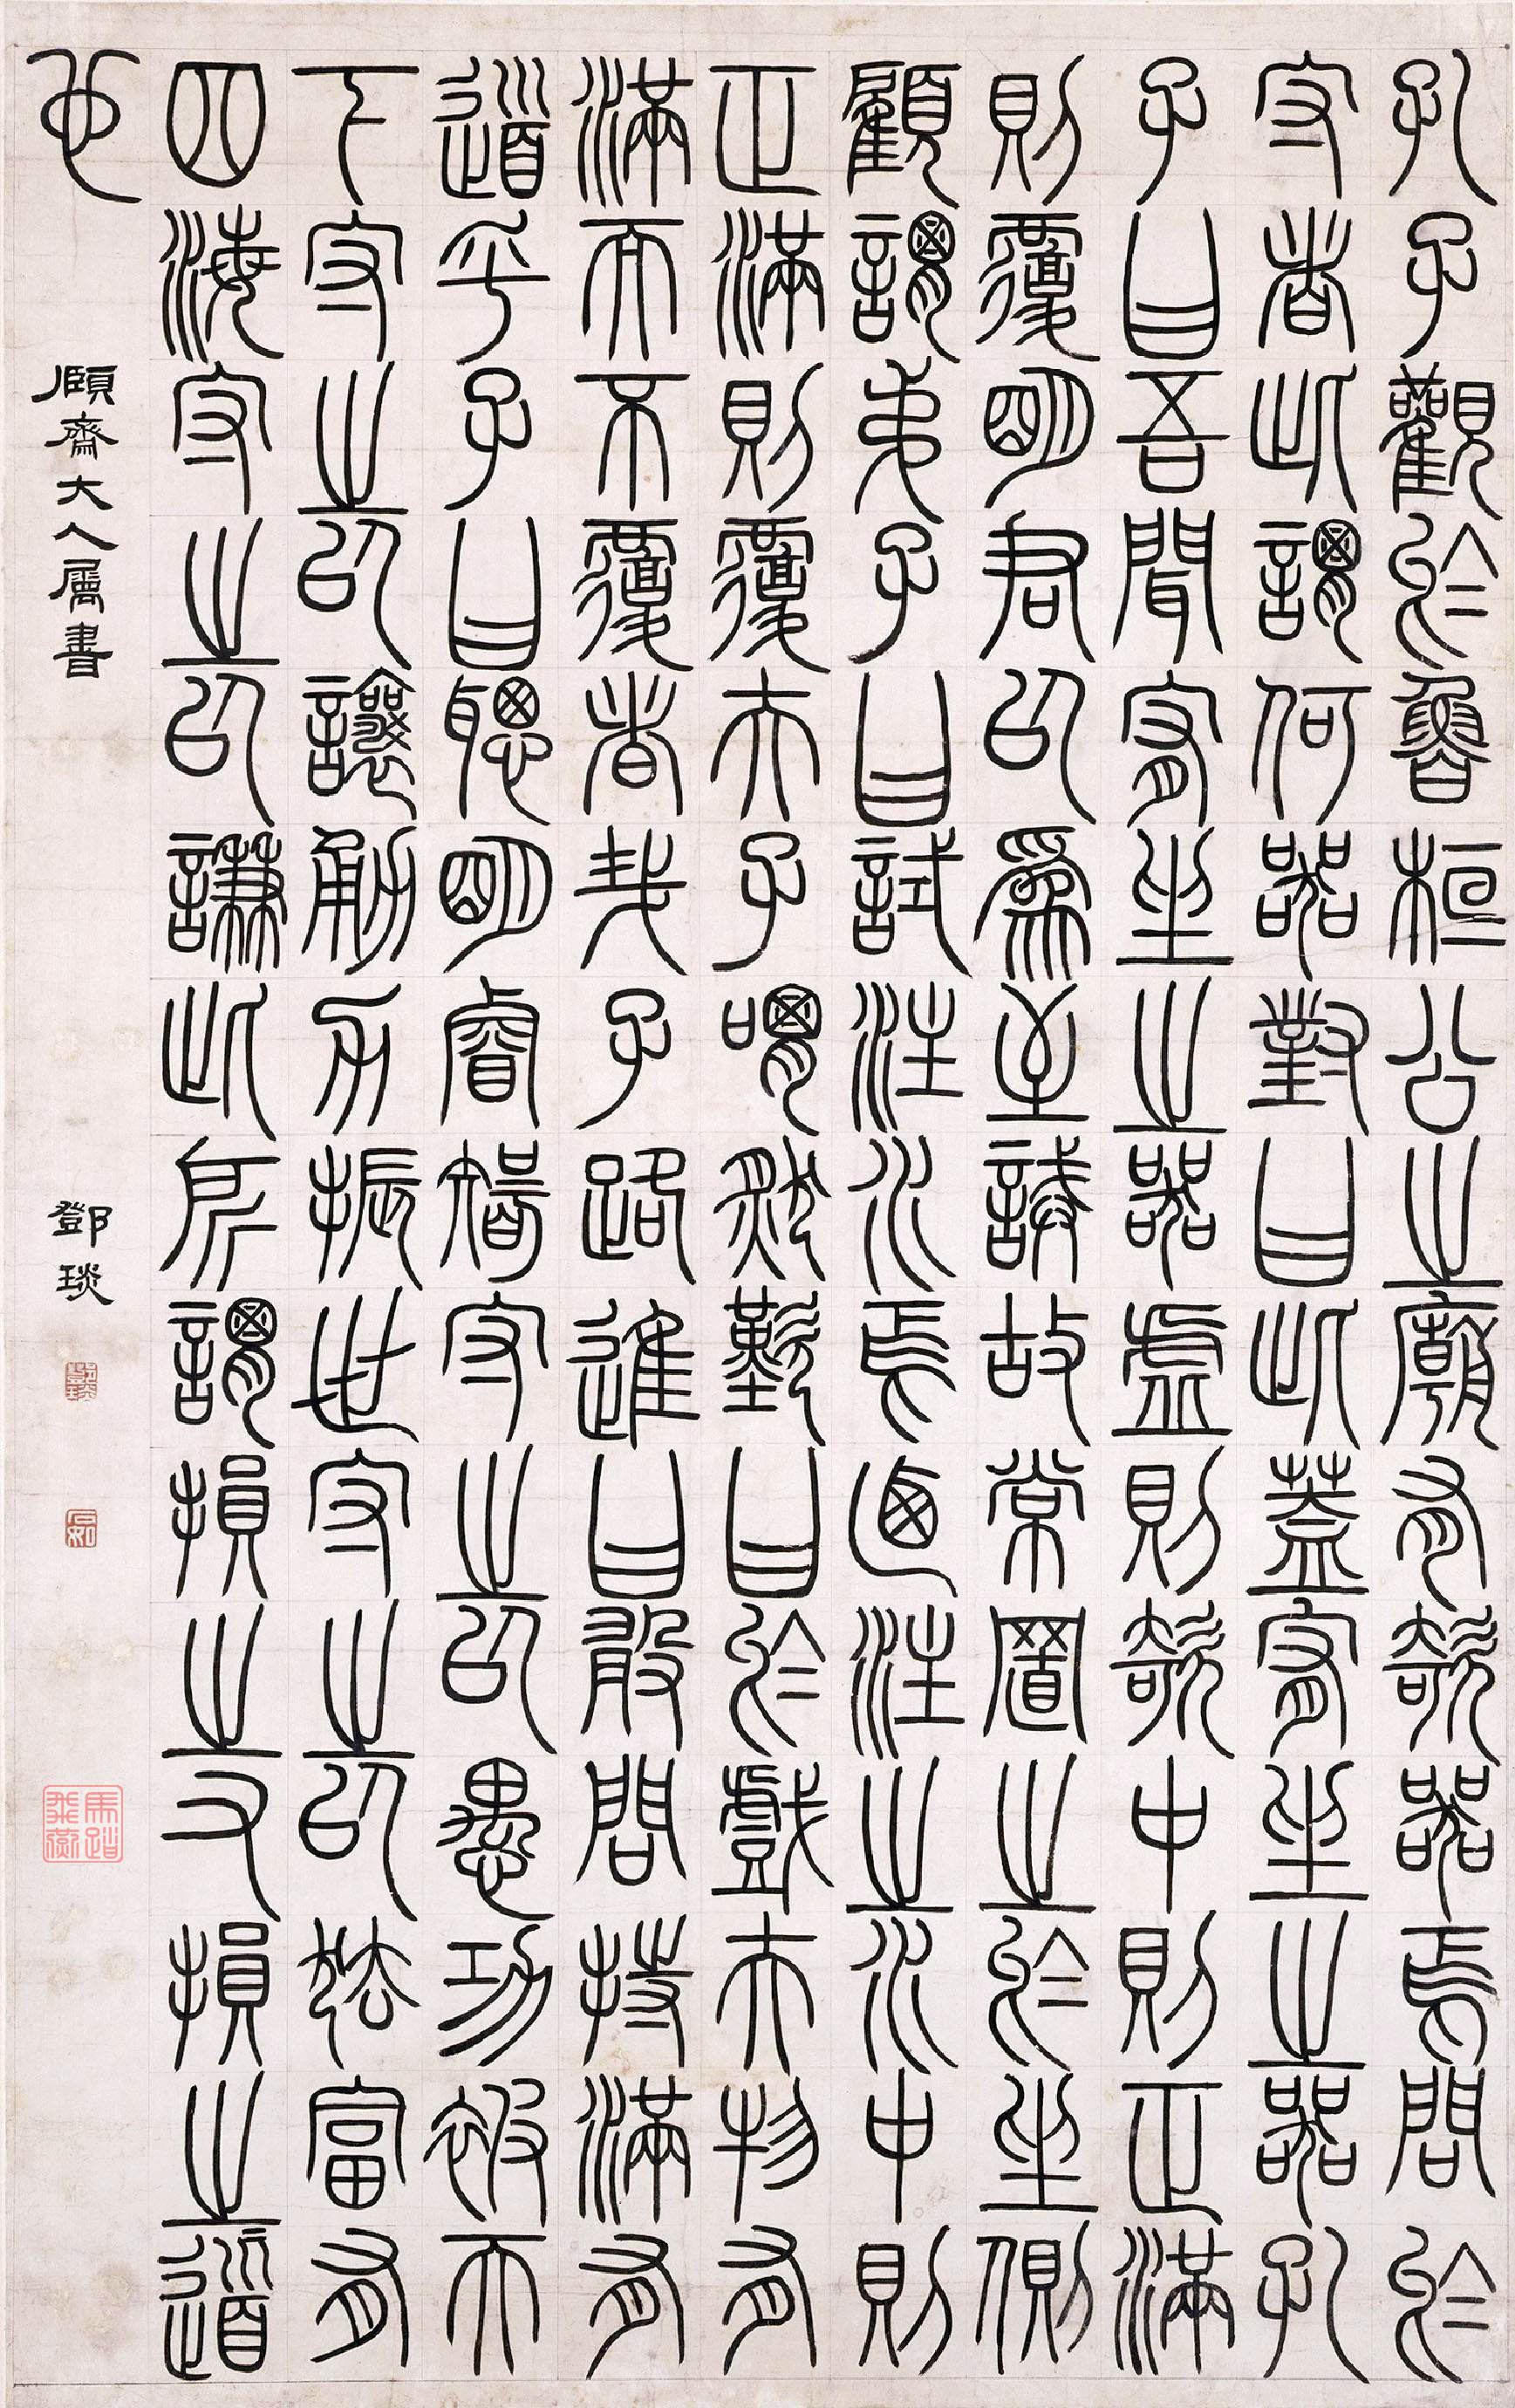 孔子觀於魯桓公之廟有欹器焉問於
守者此謂何器對曰此蓋宥坐之器孔
子曰吾聞宥坐之器虛則欹中則正滿
則覆明君以為至誡故常置之於坐側
顧謂弟子曰試注水焉乃注之水中則
正滿則覆夫子喟然歎曰於戲夫物有
滿而不覆者哉子路進曰敢問持滿有
道乎子曰聰明睿智守之以愚功被天
下守之以讓勇力振世守之以怯富有
四海守之以謙此所謂損之又損之道
也
頤齋大人屬書
鄧琰
鄧琰
石如
馬踏飛燕